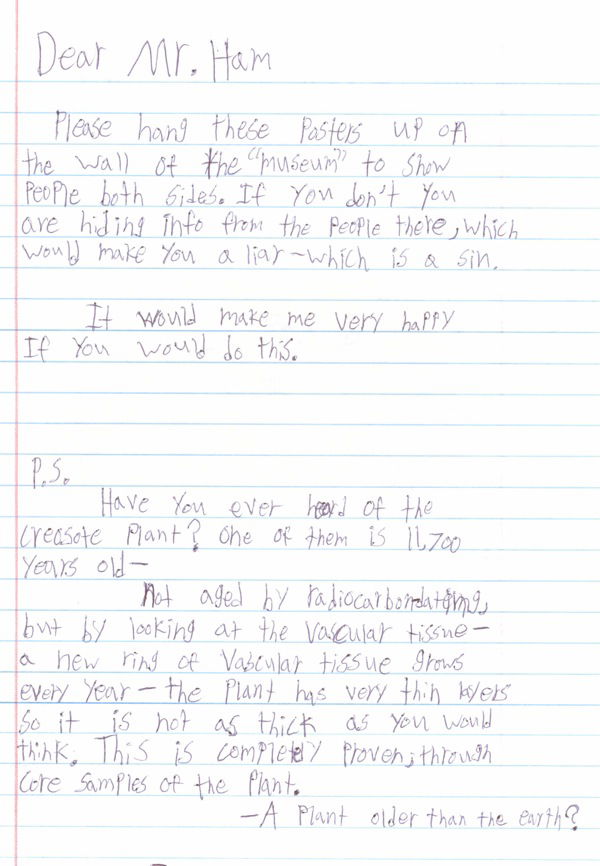 Dear Mr. Ham
Please hang these Posters up on
the wall of the "museum" to show
People both sides. If you don't you
are hiding info from the people there, which
would make you a liar-which is a sin.
It would make me very happy
If you would do this.
P.S.
Have you ever heard of the
creasote Plant? One of them is 11,700
years old-
Not aged by radiocarbondating,
but by looking at the Vascular tissue-
a new ring of Vascular tissue grows
every year - the Plant has very thin layers
so it is not as thick as you would
think. This is completely Proven, through
Core samples of the Plant.
-A Plant older than the earth?